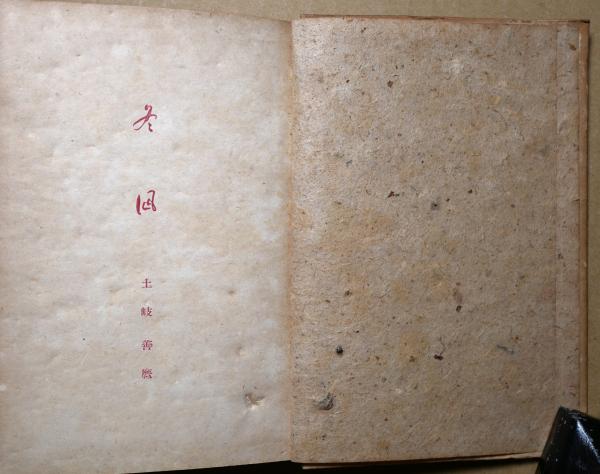 冬凪
土岐善麿